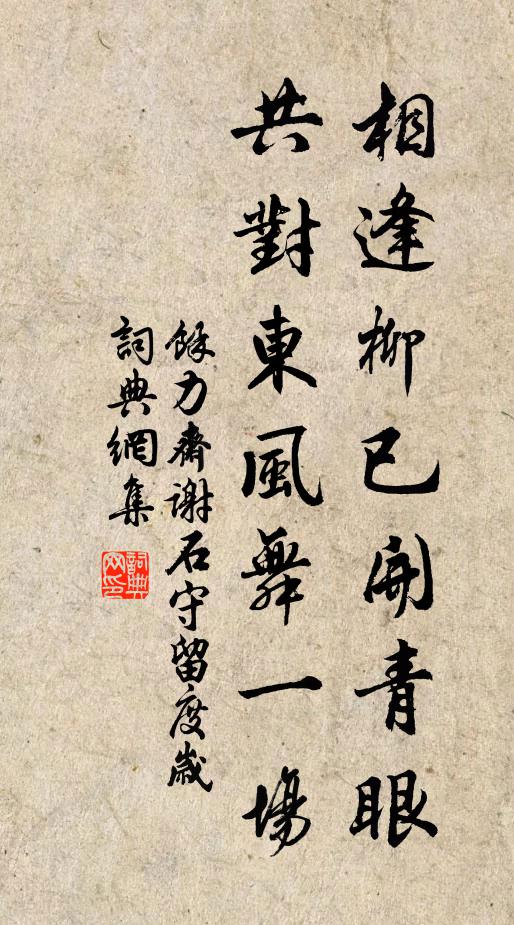 相逢柳已開青眼
共對東風舞一場
餘力齋謝石守留度歲
詞典網集
詞典網印